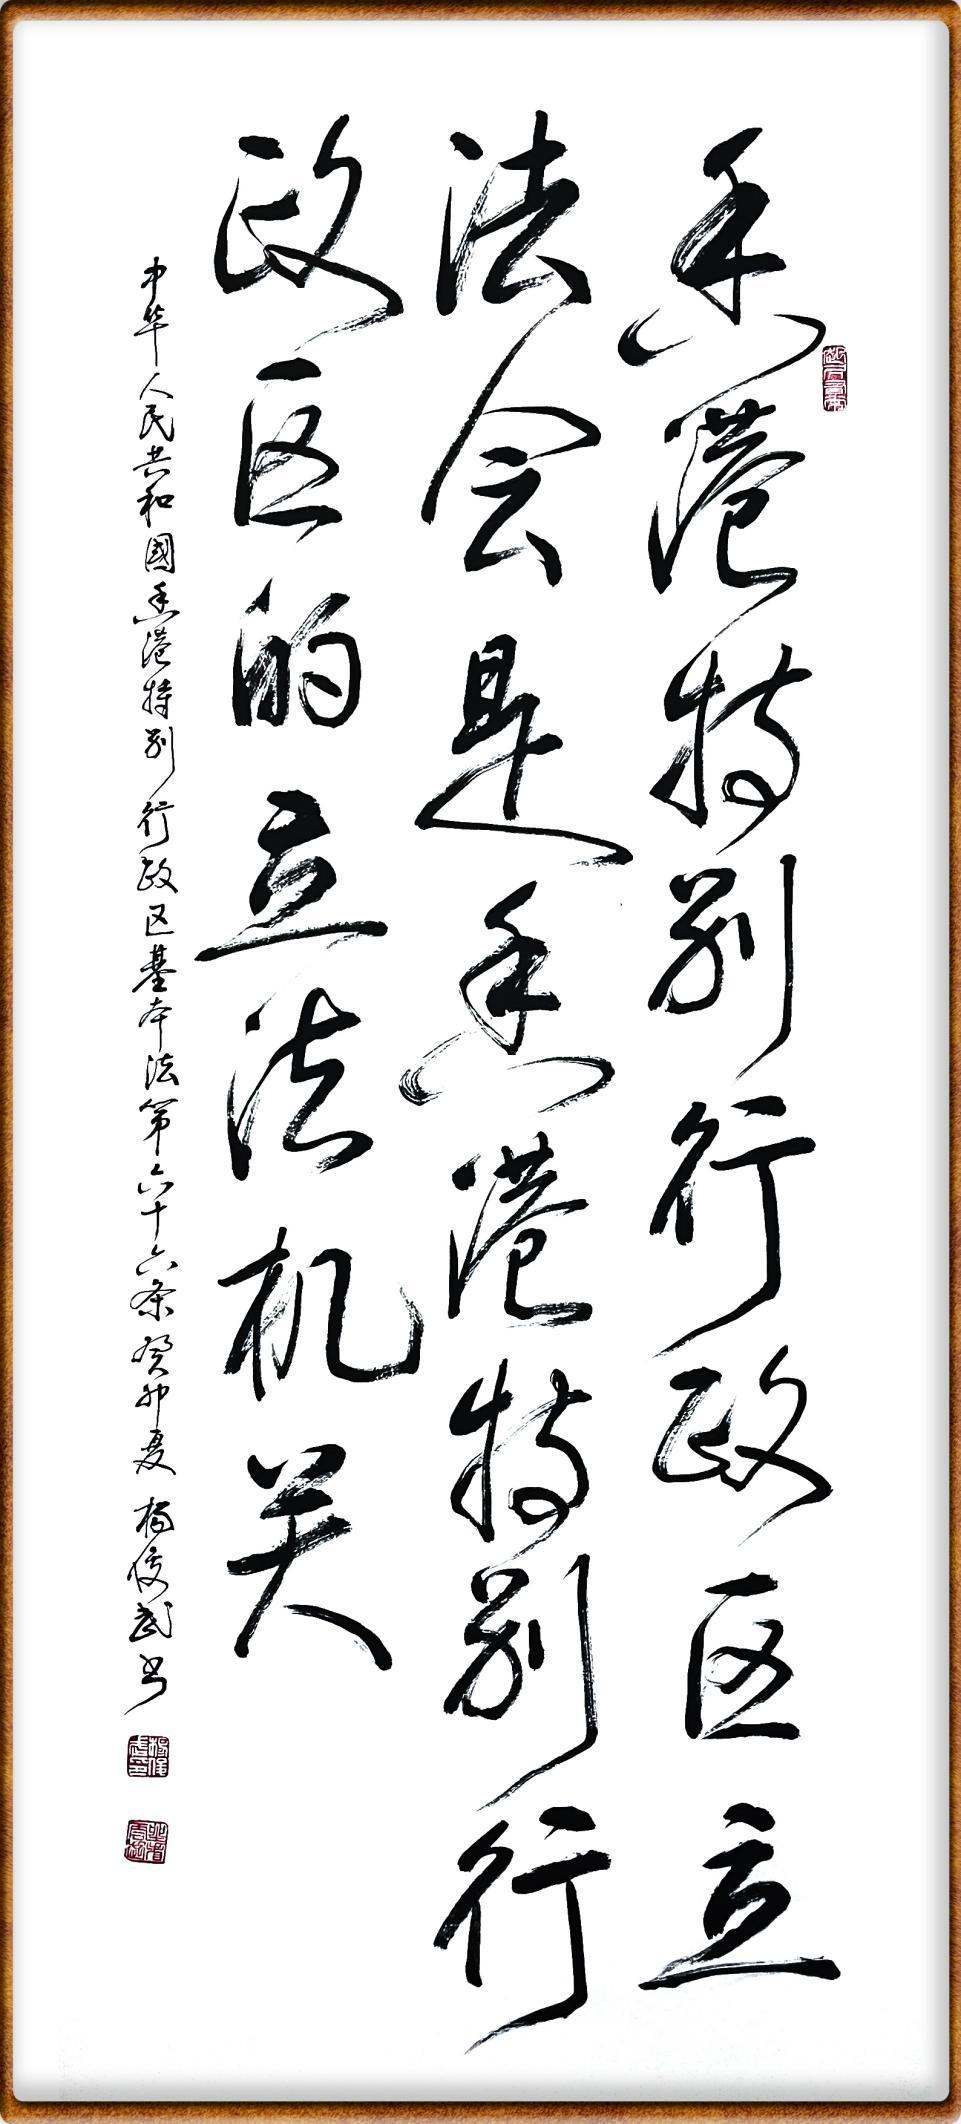 香港特别行政区立
法会是香港特别行
政区的立法机关
中华人民共和國香港特别行政区基本法第六十六条癸卯夏 杨俊武书